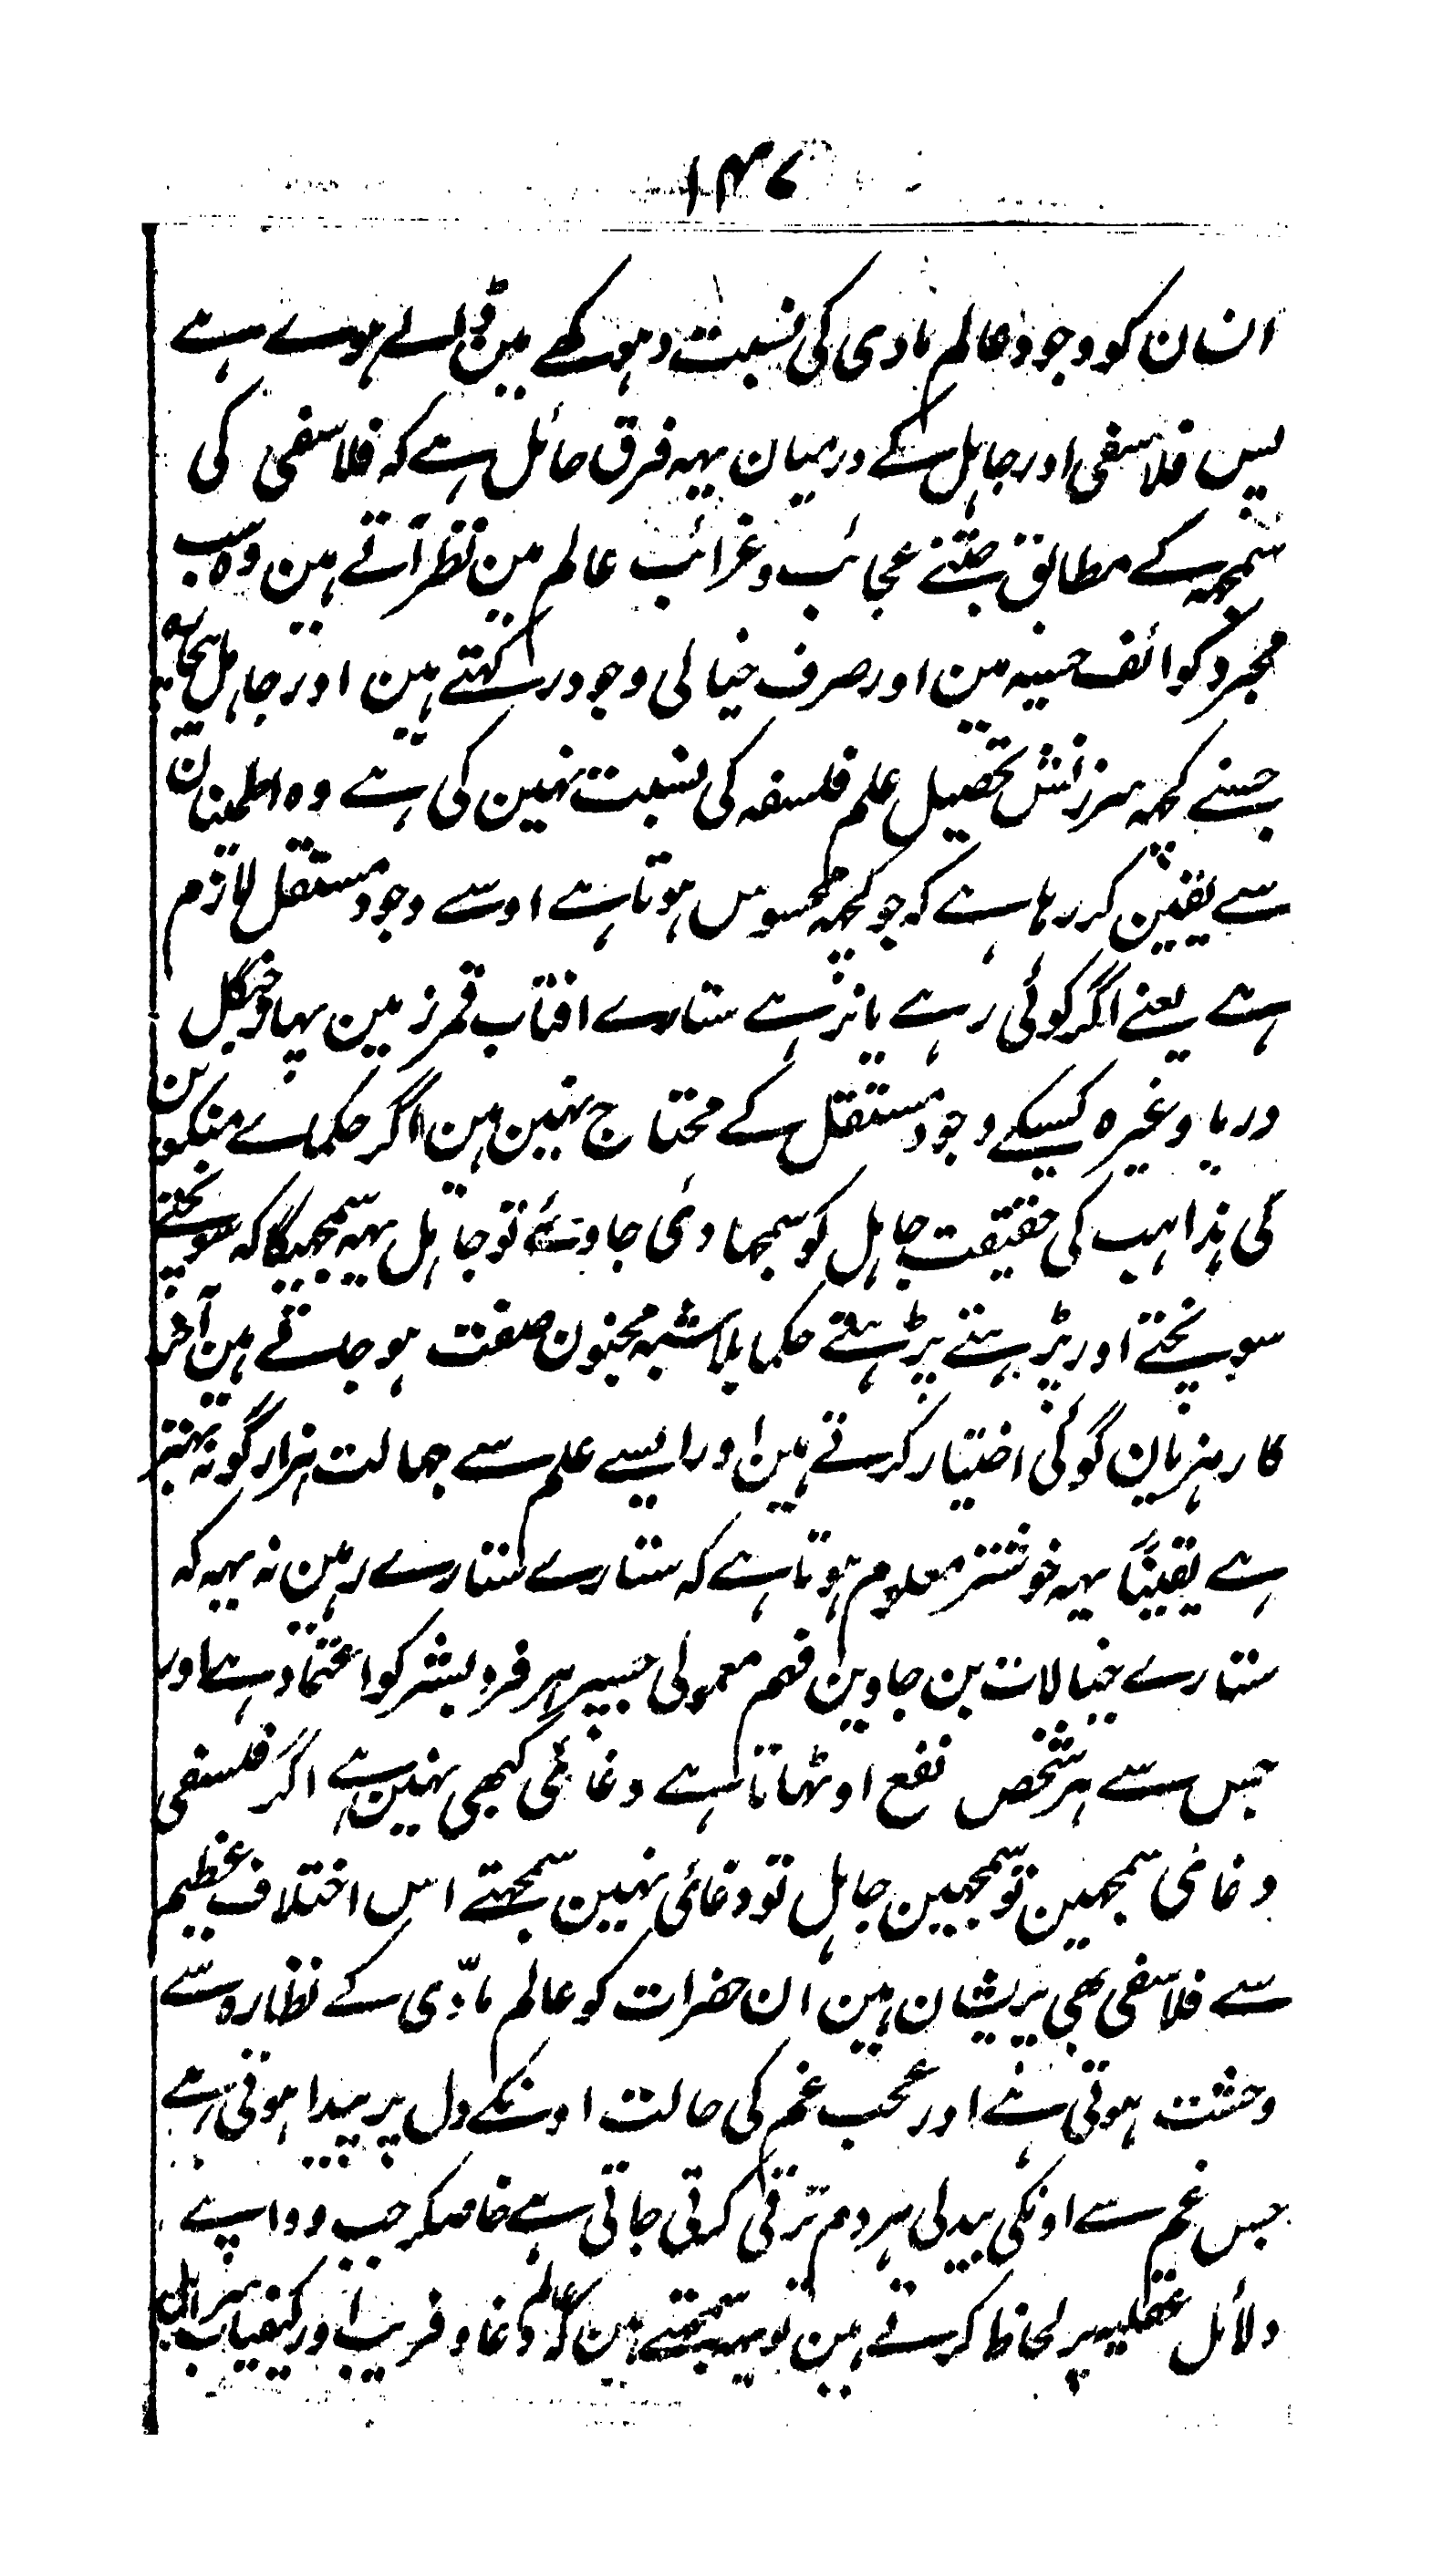 ۱۴۷
انسان کو وجود عالم مادی کی نسبت دہوکھے مین ڈالے ہوے ہے
پس فلاسفی اور جاہل کے درمیان یہہ فرق حائل ہے کہ فلاسفی کی
سمجہہ کے مطابق جتنے عجائب و غرائب عالم مین نظر آتے ہین وہ سب
مجرد کوائف حسیہ ہین اور صرف خیالی وجود رکہتے ہین اور جاہل بیچارہ
جسنے کچہہ سرزنش تحصیل علم فلسفہ کی نسبت نہین کی ہے وہ اطمینان
سے یقین کر رہا ہے کہ جو کچہہ محسوس ہوتا ہے اوسے وجود مستقل لازم
ہے یعنے اگر کوئی رہے یا نرہے ستارے افتاب قمر زمین پہاڑ جنگل
دریا وغیرہ کسیکے وجود مستقل کے محتاج نہین ہین اگر حکماے منکرین
کی مذاہب کی حقیقت جاہل کو سمجہا دی جاوئے تو جاہل یہہ سمجہیگا کہ سونچتے
سونچتے اور پڑہتے پڑہتے حکما بلاشبہ مجنون صفت ہو جاتے ہین آخر
کار ہزیان گوئی اختیار کرتے ہین اور ایسے علم سے جہالت ہزار گونہ بہتر
ہے یقیناً یہہ خوشتر معلوم ہوتا ہے کہ ستارے ستارے رہین نہ یہہ کہ
ستارے خیالات بن جاوین فہم معمولی جسپر ہر فرد بشر کو اعتماد ہے اور
جس سے ہر شخص نفع اوٹہاتا ہے دغائی کبھی نہین ہے اگر فلسفی
دغائی سمجہین تو سمجہین جاہل تو دغائی نہین سمجہتے اس اختلاف عظیم
سے فلاسفی بھی پریشان ہین ان حضرات کو عالم مادّی کے نظارہ سے
وحشت ہوتی ہے اور عجب غم کی حالت اونکے دل پر پیدا ہوتی ہے
جس غم سے اونکی بیدلی ہر دم ترقی کرتی جاتی ہے خاصکر جب وہ اپنے
دلائل عقلیہ پر لحاظ کرتے ہین تو یہہ سمجہتے ہین کہ عالم دغا و فریب اور کیفیات